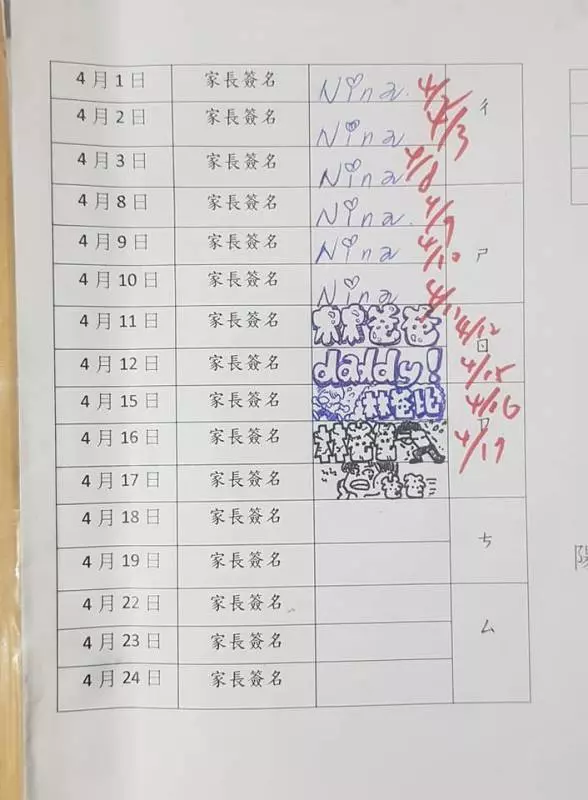 4月1日 家長簽名 Nina 4/2 ㄔ
4月2日 家長簽名 Nina 4/3
4月3日 家長簽名 Nina 4/8
4月8日 家長簽名 Nina 4/9
4月9日 家長簽名 Nina 4/10 ㄕ
4月10日 家長簽名 Nina 4/11
4月11日 家長簽名 爸爸 4/12
4月12日 家長簽名 daddy! 4/15 ㄖ
4月15日 家長簽名 林爸比 4/16 ㄗ
4月16日 家長簽名 4/17
4月17日 家長簽名 爸爸
4月18日 家長簽名
4月19日 家長簽名 ㄘ
4月22日 家長簽名
4月23日 家長簽名 ㄙ
4月24日 家長簽名